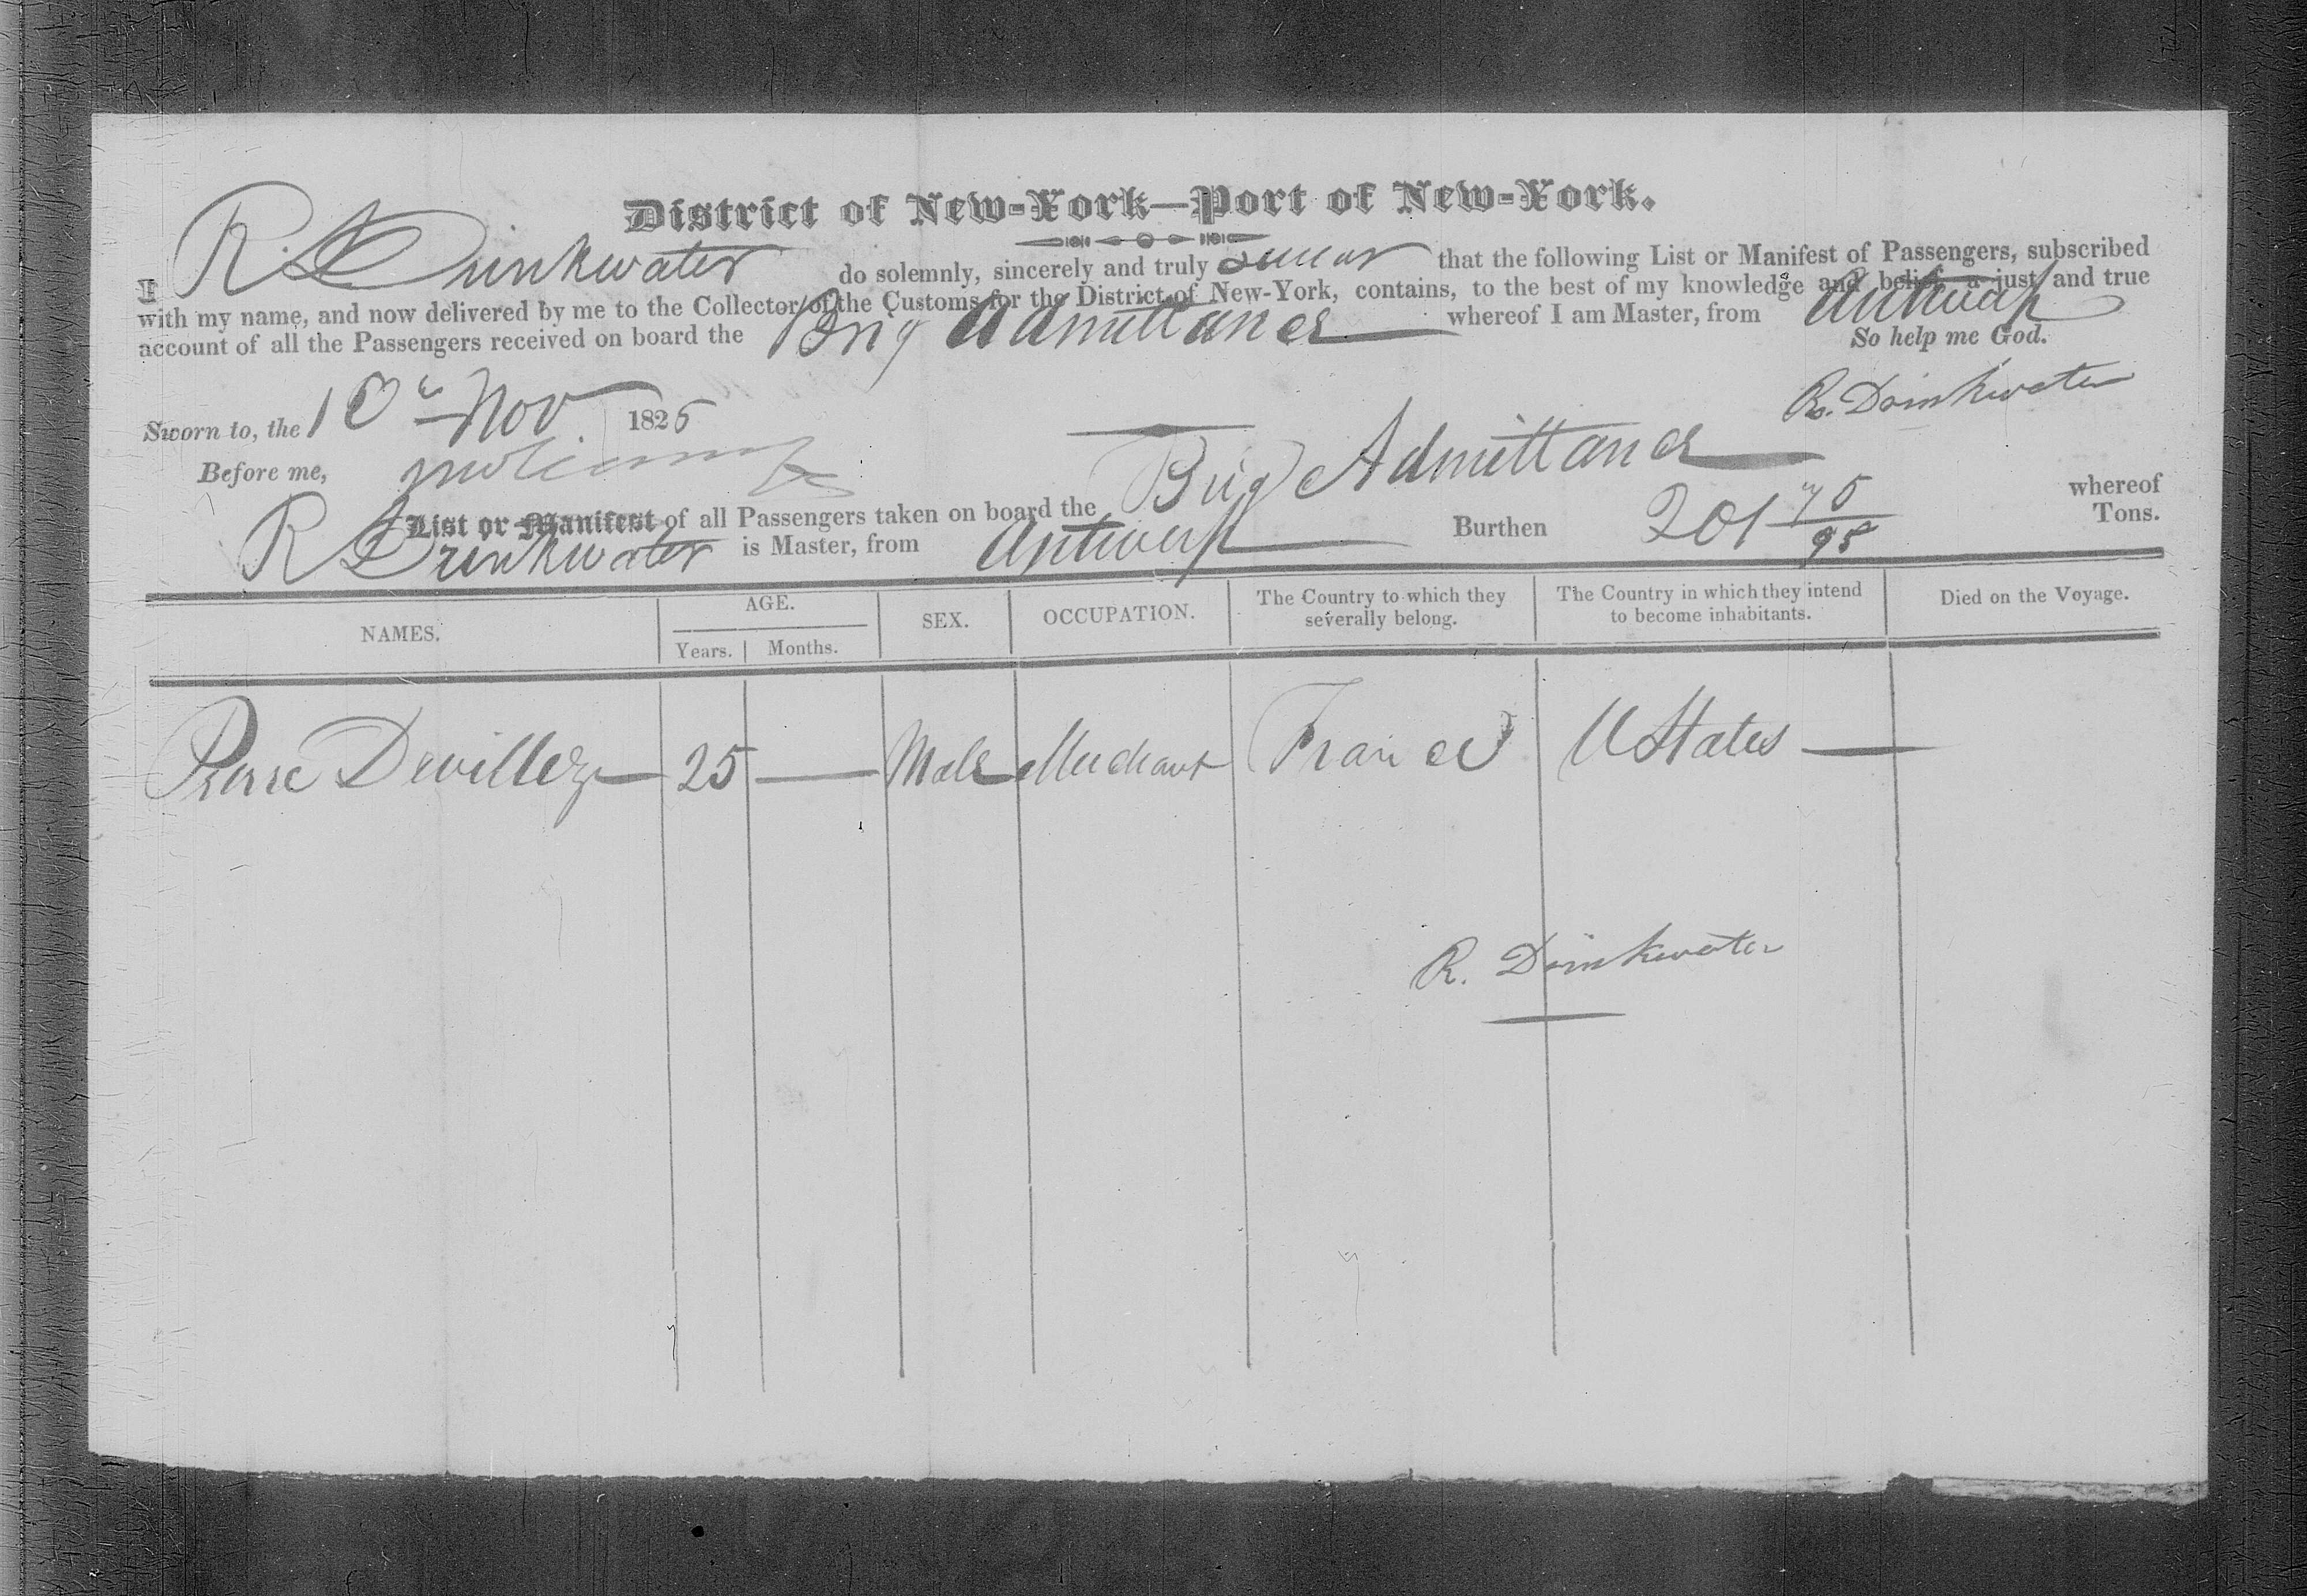 District of New-York—Port of New-York.
I R Drinkwater do solemnly, sincerely and truly swear that the following List or Manifest of Passengers, subscribed
with my name, and now delivered by me to the Collector of the Customs for the District of New-York, contains, to the best of my knowledge and belief, a just and true
account of all the Passengers received on board the Brig Admittance whereof I am Master, from Antwerp
So help me God.
Sworn to, the 10th Nov 1826
R. Drinkwater
Before me,
List or Manifest of all Passengers taken on board the Brig Admittance whereof
R Drinkwater is Master, from Antwerp Burthen 201 75/95 Tons.
NAMES. AGE. Years. Months. SEX. OCCUPATION. The Country to which they severally belong. The Country in which they intend to become inhabitants. Died on the Voyage.
Pierre Devillez 25 — Male Merchant France U States —
R. Drinkwater